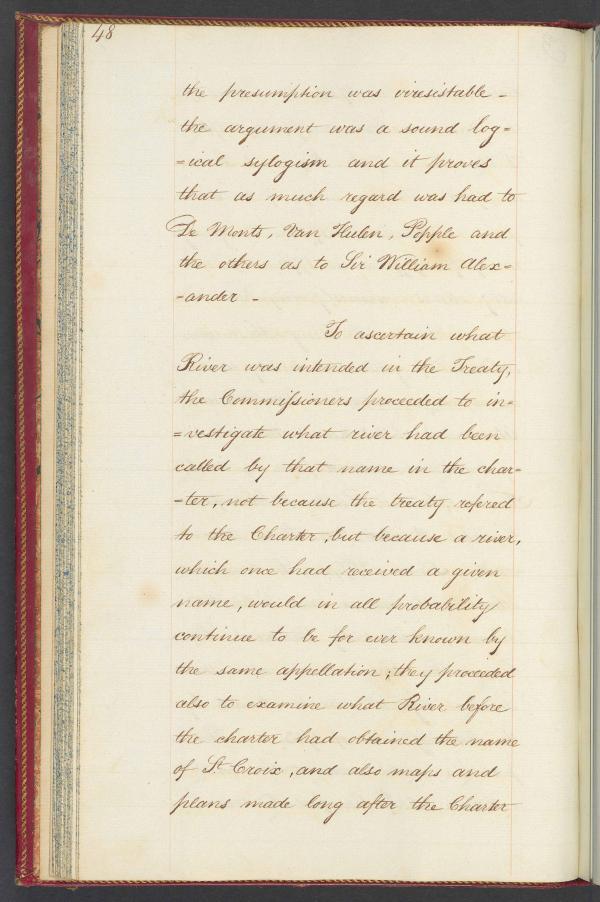 48
the presumption was viresistable -
the argument was a sound log=
=ical sylogism and it proves
that as much regard was had to
De Monts, Van Hulen, Popple and
the others as to Sir William Alex=
-ander -
To ascertain what
River was intended in the Treaty,
the Commissioners proceeded to in=
=vestigate what river had been
called by that name in the char-
-ter, not because the treaty refered
to the Charter, but because a river,
which once had received a given
name, would in all probability
continue to be for ever known by
the same appellation; they proceeded
also to examine what River before
the charter had obtained the name
of St Croix, and also maps and
plans made long after the Charter